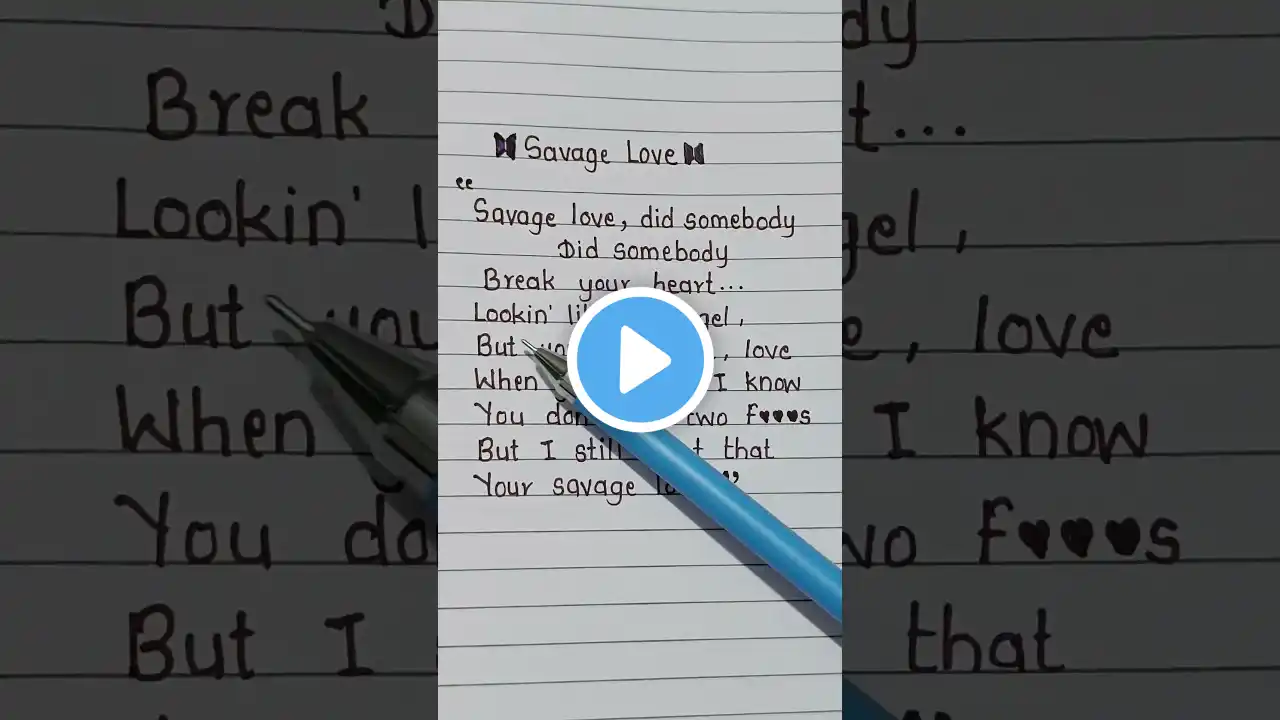 Savage Love
“
Savage love, did somebody
Did somebody
Break your heart...
Lookin' gel,
But , love
When I know
You two f♥♥♥s
But I still that
Your savage ”